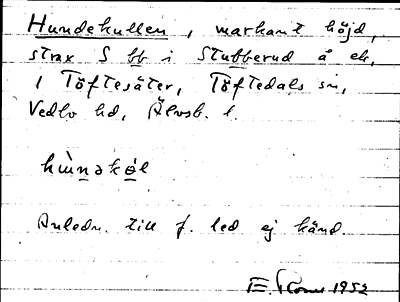 Hundekullen, markant höjd,
strax S bb i Stubberud å ek,
1 Töftesäter, Töftedals sn,
Vedbo hd, Älvsb. l.
hùnəkəl
Anledn. till f. led ej känd.
E. 1952